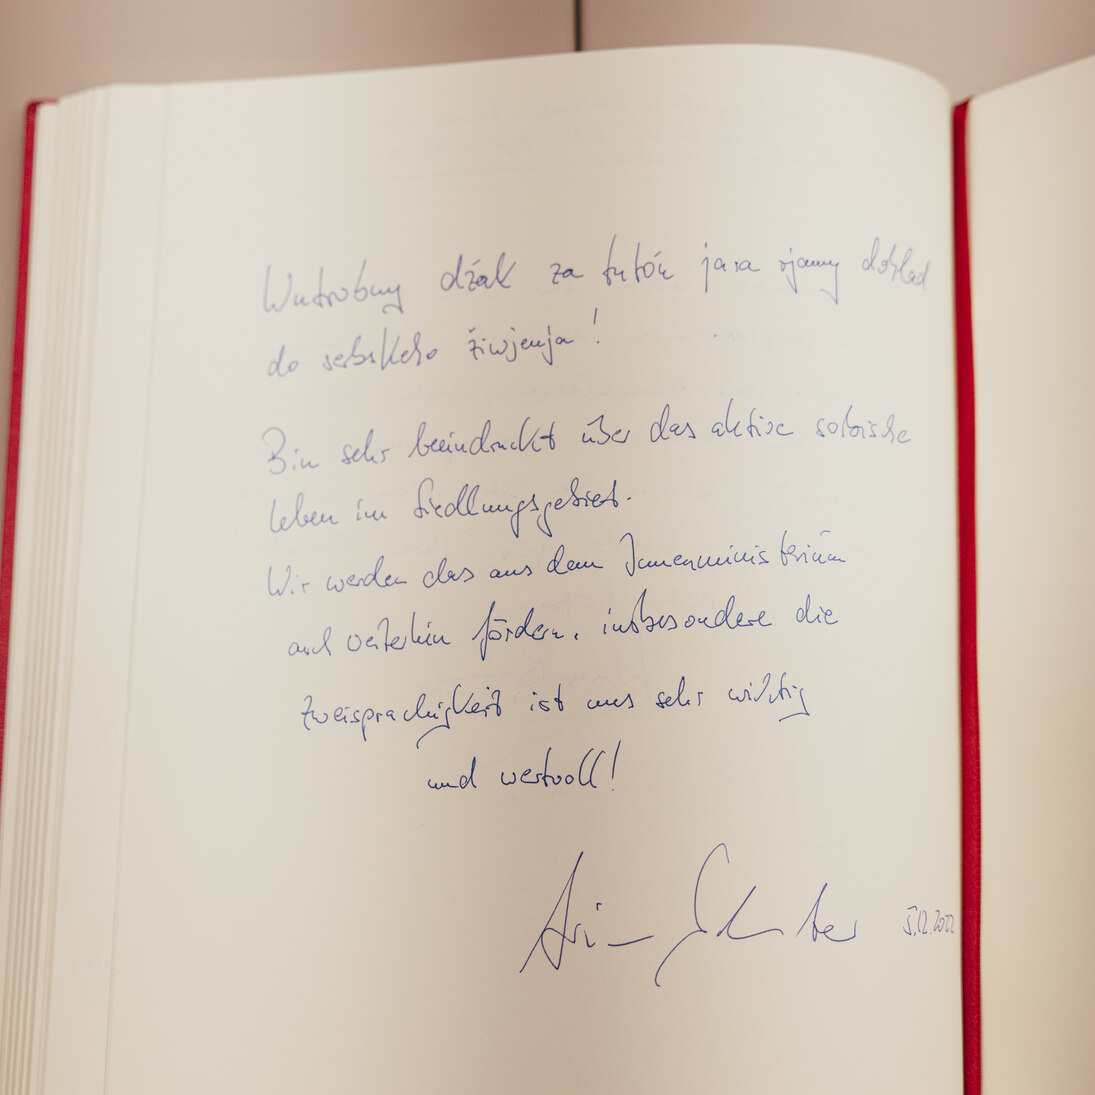 Wutrobny dźak za tutón jara rjany dohlad
do serbskeho žiwjenja!
Bin sehr beeindruckt über das aktive sorbische
Leben im Siedlungsgebiet.
Wir werden das aus dem Innenministerium
auch weiterhin fördern, insbesondere die
Zweisprachigkeit ist uns sehr wichtig
und wertvoll!
Armin Schuster 5.12.2022